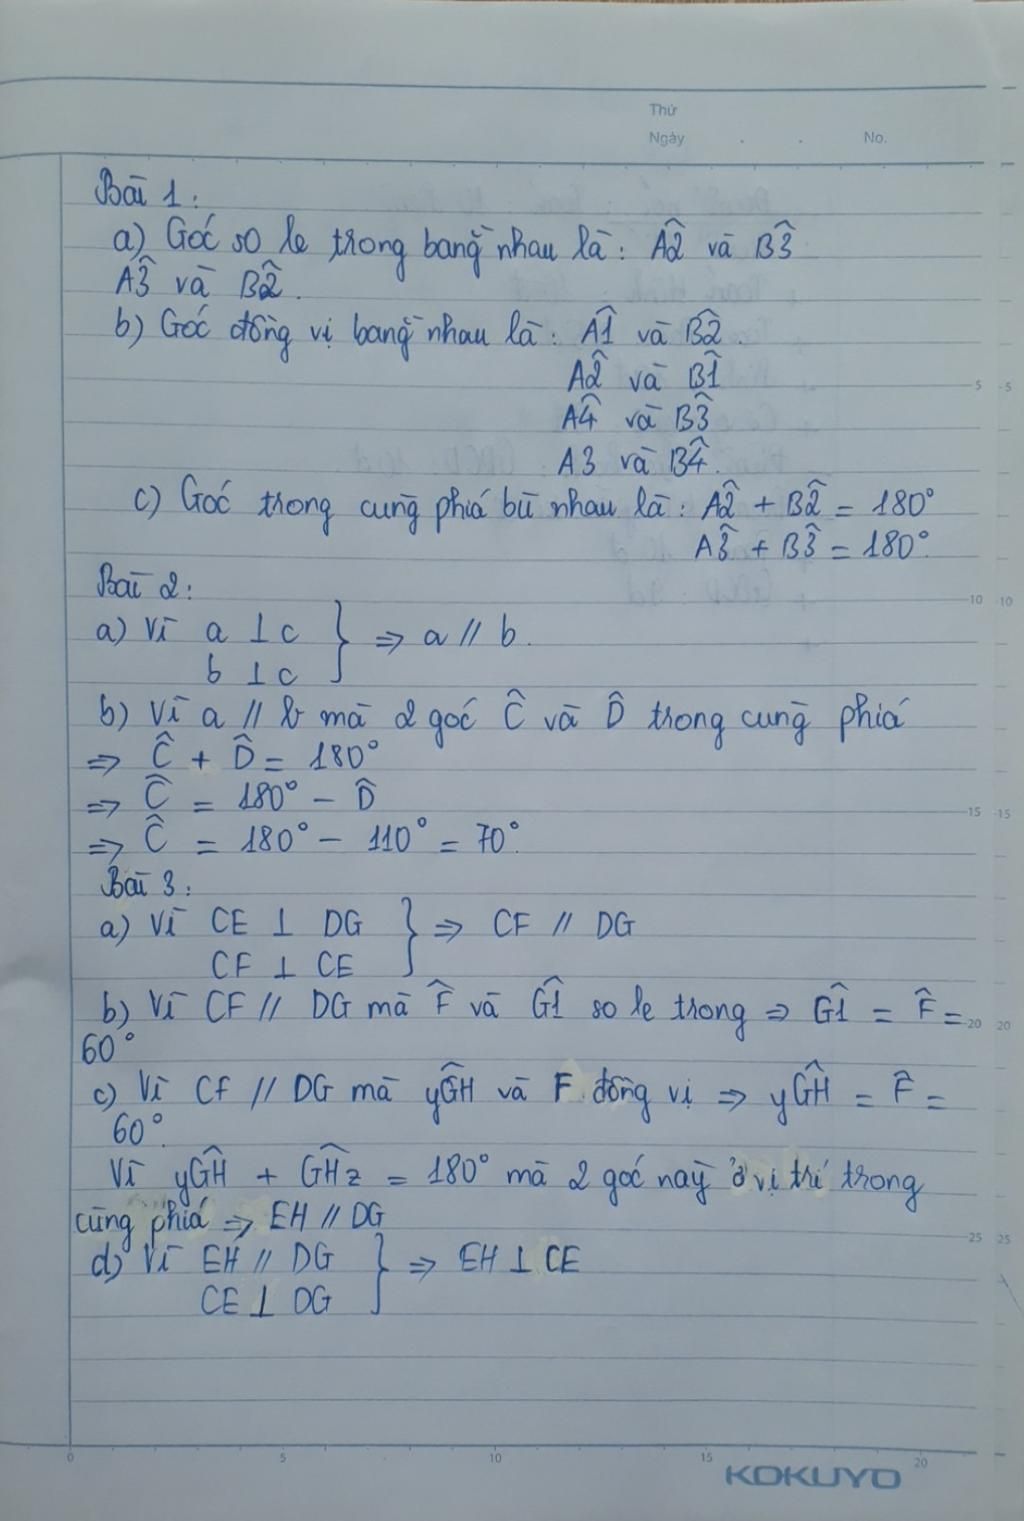 Thứ
Ngày . . No.
Bài 1:
a) Góc so le trong bằng nhau là: Â2 và B̂3
Â3 và B̂2.
b) Góc đồng vị bằng nhau là: Â1 và B̂2.
Â2 và B̂1
Â4 và B̂3
A3 và B̂4.
c) Góc trong cùng phía bù nhau là: Â2 + B̂2 = 180°
Â3 + B̂3 = 180°.
Bài 2:
a) Vì a ⊥ c } ⇒ a // b.
b ⊥ c
b) Vì a // b mà 2 góc Ĉ và D̂ trong cùng phía
⇒ Ĉ + D̂ = 180°
⇒ Ĉ = 180° - D̂
⇒ Ĉ = 180° - 110° = 70°.
Bài 3:
a) Vì CE ⊥ DG } ⇒ CF // DG
CF ⊥ CE
b) Vì CF // DG mà F̂ và Ĝ1 so le trong ⇒ Ĝ1 = F̂ =
60°
c) Vì CF // DG mà yĜH và F đồng vị ⇒ yĜH = F̂ =
60°.
Vì yĜH + GĤz = 180° mà 2 góc này ở vị trí trong
cùng phía ⇒ EH // DG
d) Vì EH // DG } ⇒ EH ⊥ CE
CE ⊥ DG
5 5
10 10
15 15
20 20
25 25
0 5 10 15 20
KOKUYO